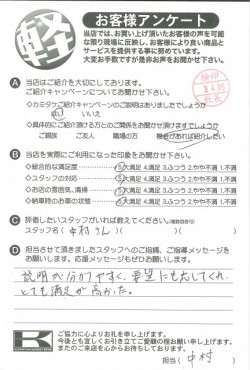 軽
お客様アンケート
当店では、お買い上げ頂いたお客様の声を可能
な限り現場に反映し、お客様により良い商品と
サービスを提供する事に努めています。
大変お手数ですが是非お声をお聞かせ下さい。
A 当店はご紹介を大切にしてあります。
ご紹介キャンペーンについてお聞かせ下さい。
◇カミタケご紹介キャンペーンのご説明はありましたでしょうか
はい いいえ
◇具体的にご紹介頂ける方とのご関係をお聞かせ頂けますでしょうか
ご親族 ご友人 職場の方 機会があれば紹介したい
B 当店を実際にご利用になった印象をお聞かせ下さい。
◇総合的な満足度 5.大満足 4.満足 3.ふつう 2.やや不満 1.不満
◇スタッフの対応 5.大満足 4.満足 3.ふつう 2.やや不満 1.不満
◇お店の雰囲気、清掃 5.大満足 4.満足 3.ふつう 2.やや不満 1.不満
◇納車時のお車の状態 5.大満足 4.満足 3.ふつう 2.やや不満 1.不満
C 評価したいスタッフがいれば教えてください。(複数回答可)
スタッフ名( 中村さん )( )( )
D 担当させて頂きましたスタッフへのご指摘、ご指導メッセージを
お願いします。応援メッセージもぜひお願いします!
説明が分かりやすく、要望にも応じてくれ、
とても満足が高かった。
K
ご協力に心よりお礼を申し上げます。
今後とも宜しくお引き立てご愛顧の程お願い申し上げます。
またのご来店を心からお待ちしております。
担当( 中村 )